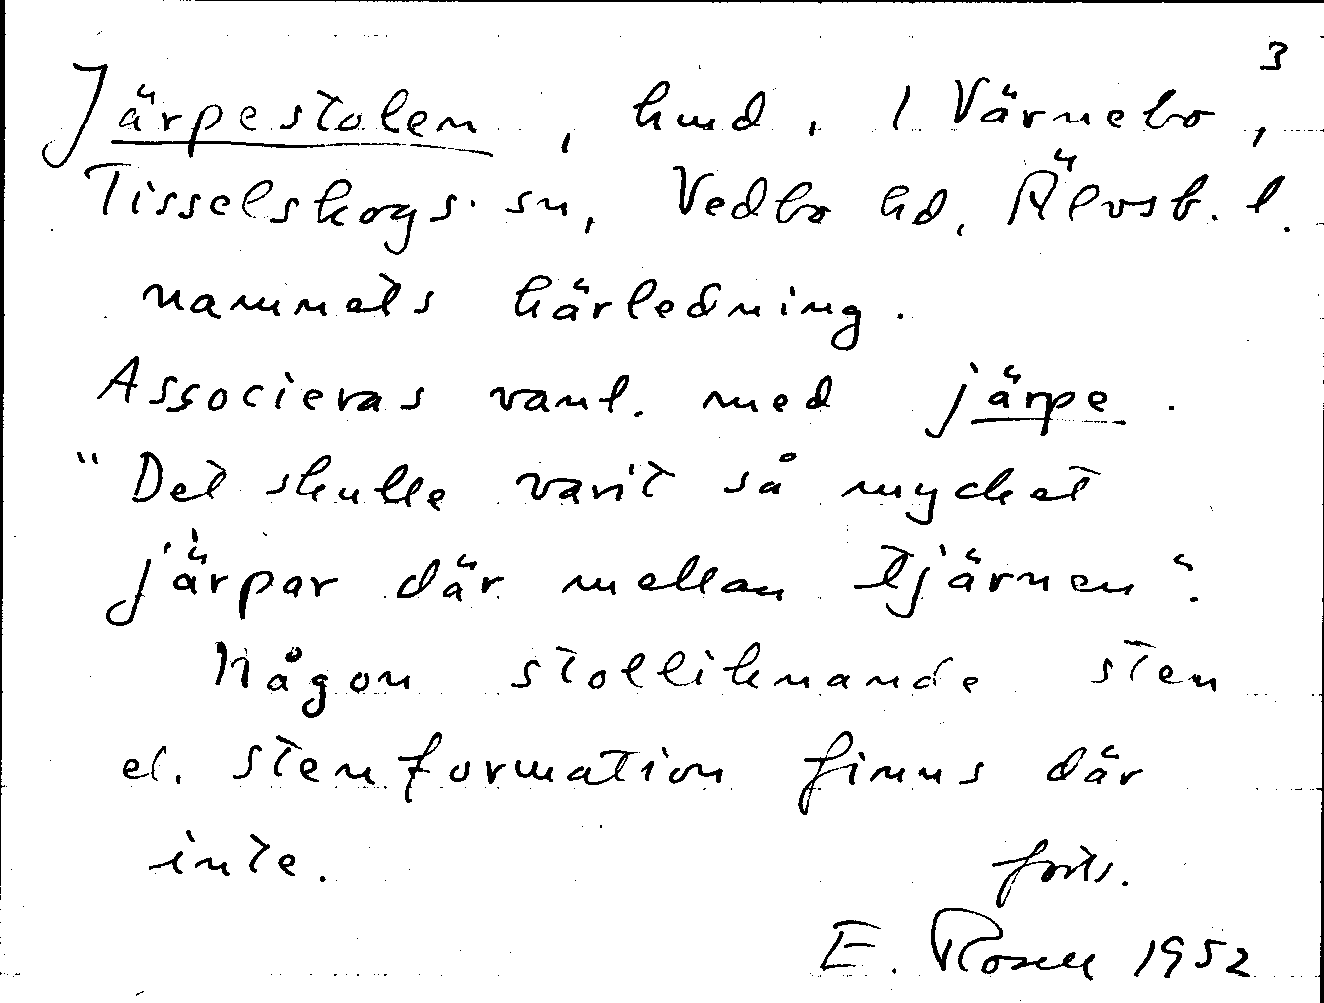 3
Järpestolen, hmd, 1 Värnebo,
Tisselskogs sn, Vedbo hd, Älvsb. l.
namnets härledning.
Associeras vanl. med järpe.
"Det skulle varit så mycket
järpar där mellan tjärnen".
Någon stolliknande sten
el. stenformation finns där
inte. forts.
E. Rosell 1952